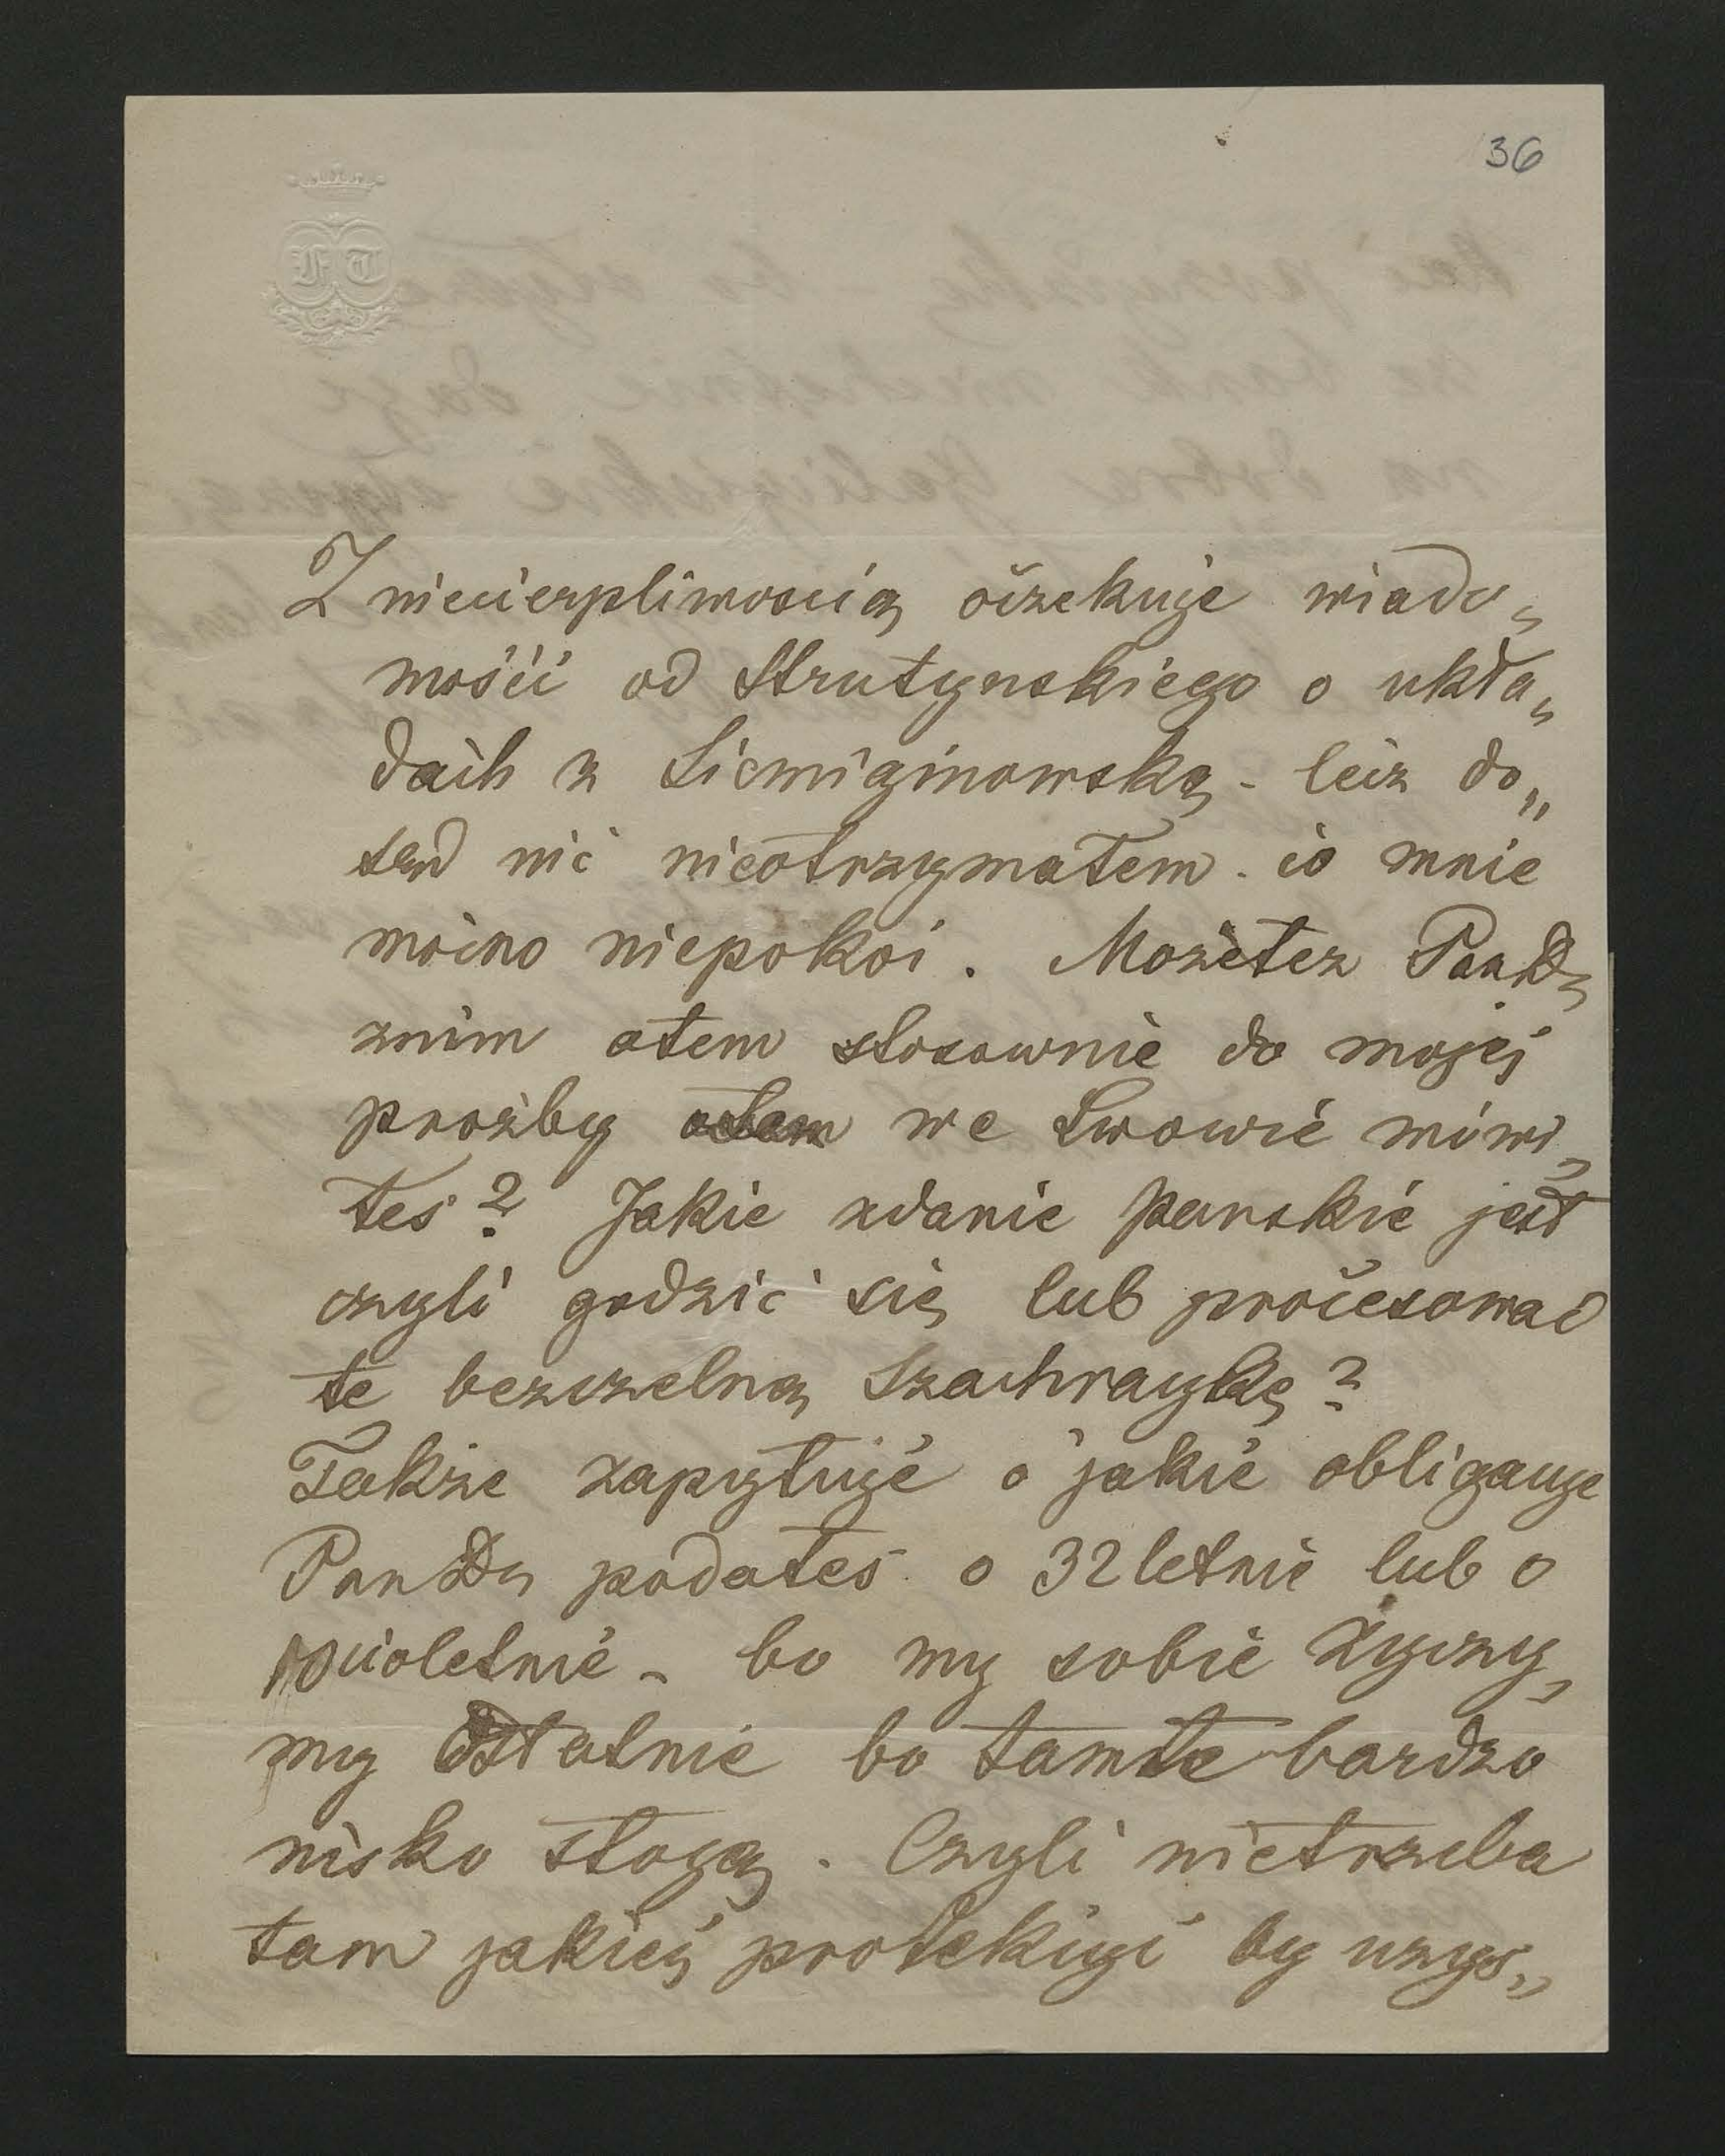 36
F T
Z niecierpliwoscią oczekuje wiado„
mości od Strutynskiego o ukła„
dach z Siemiginowską - lecz do„
sąd nic nieotrzymałem. co mnie
mocno niepokoi. Możetez Pan D„
znim otem stosownie do mojej
prozby otem we Lwowie mówi„
łes? Jakie zdanie Panskie jest
czyli godzić się lub procesować
te bezczelną Szachraykę?
Także zapytuje o jakie obligacye
Pan D„ podałeś. o 32letnie lub o
cioletnie - bo my sobie życzy„
my Ostatnie bo tamte bardzo
nisko stoją. Czyli nietrzeba
tam jakiej protekcyi by uzys„